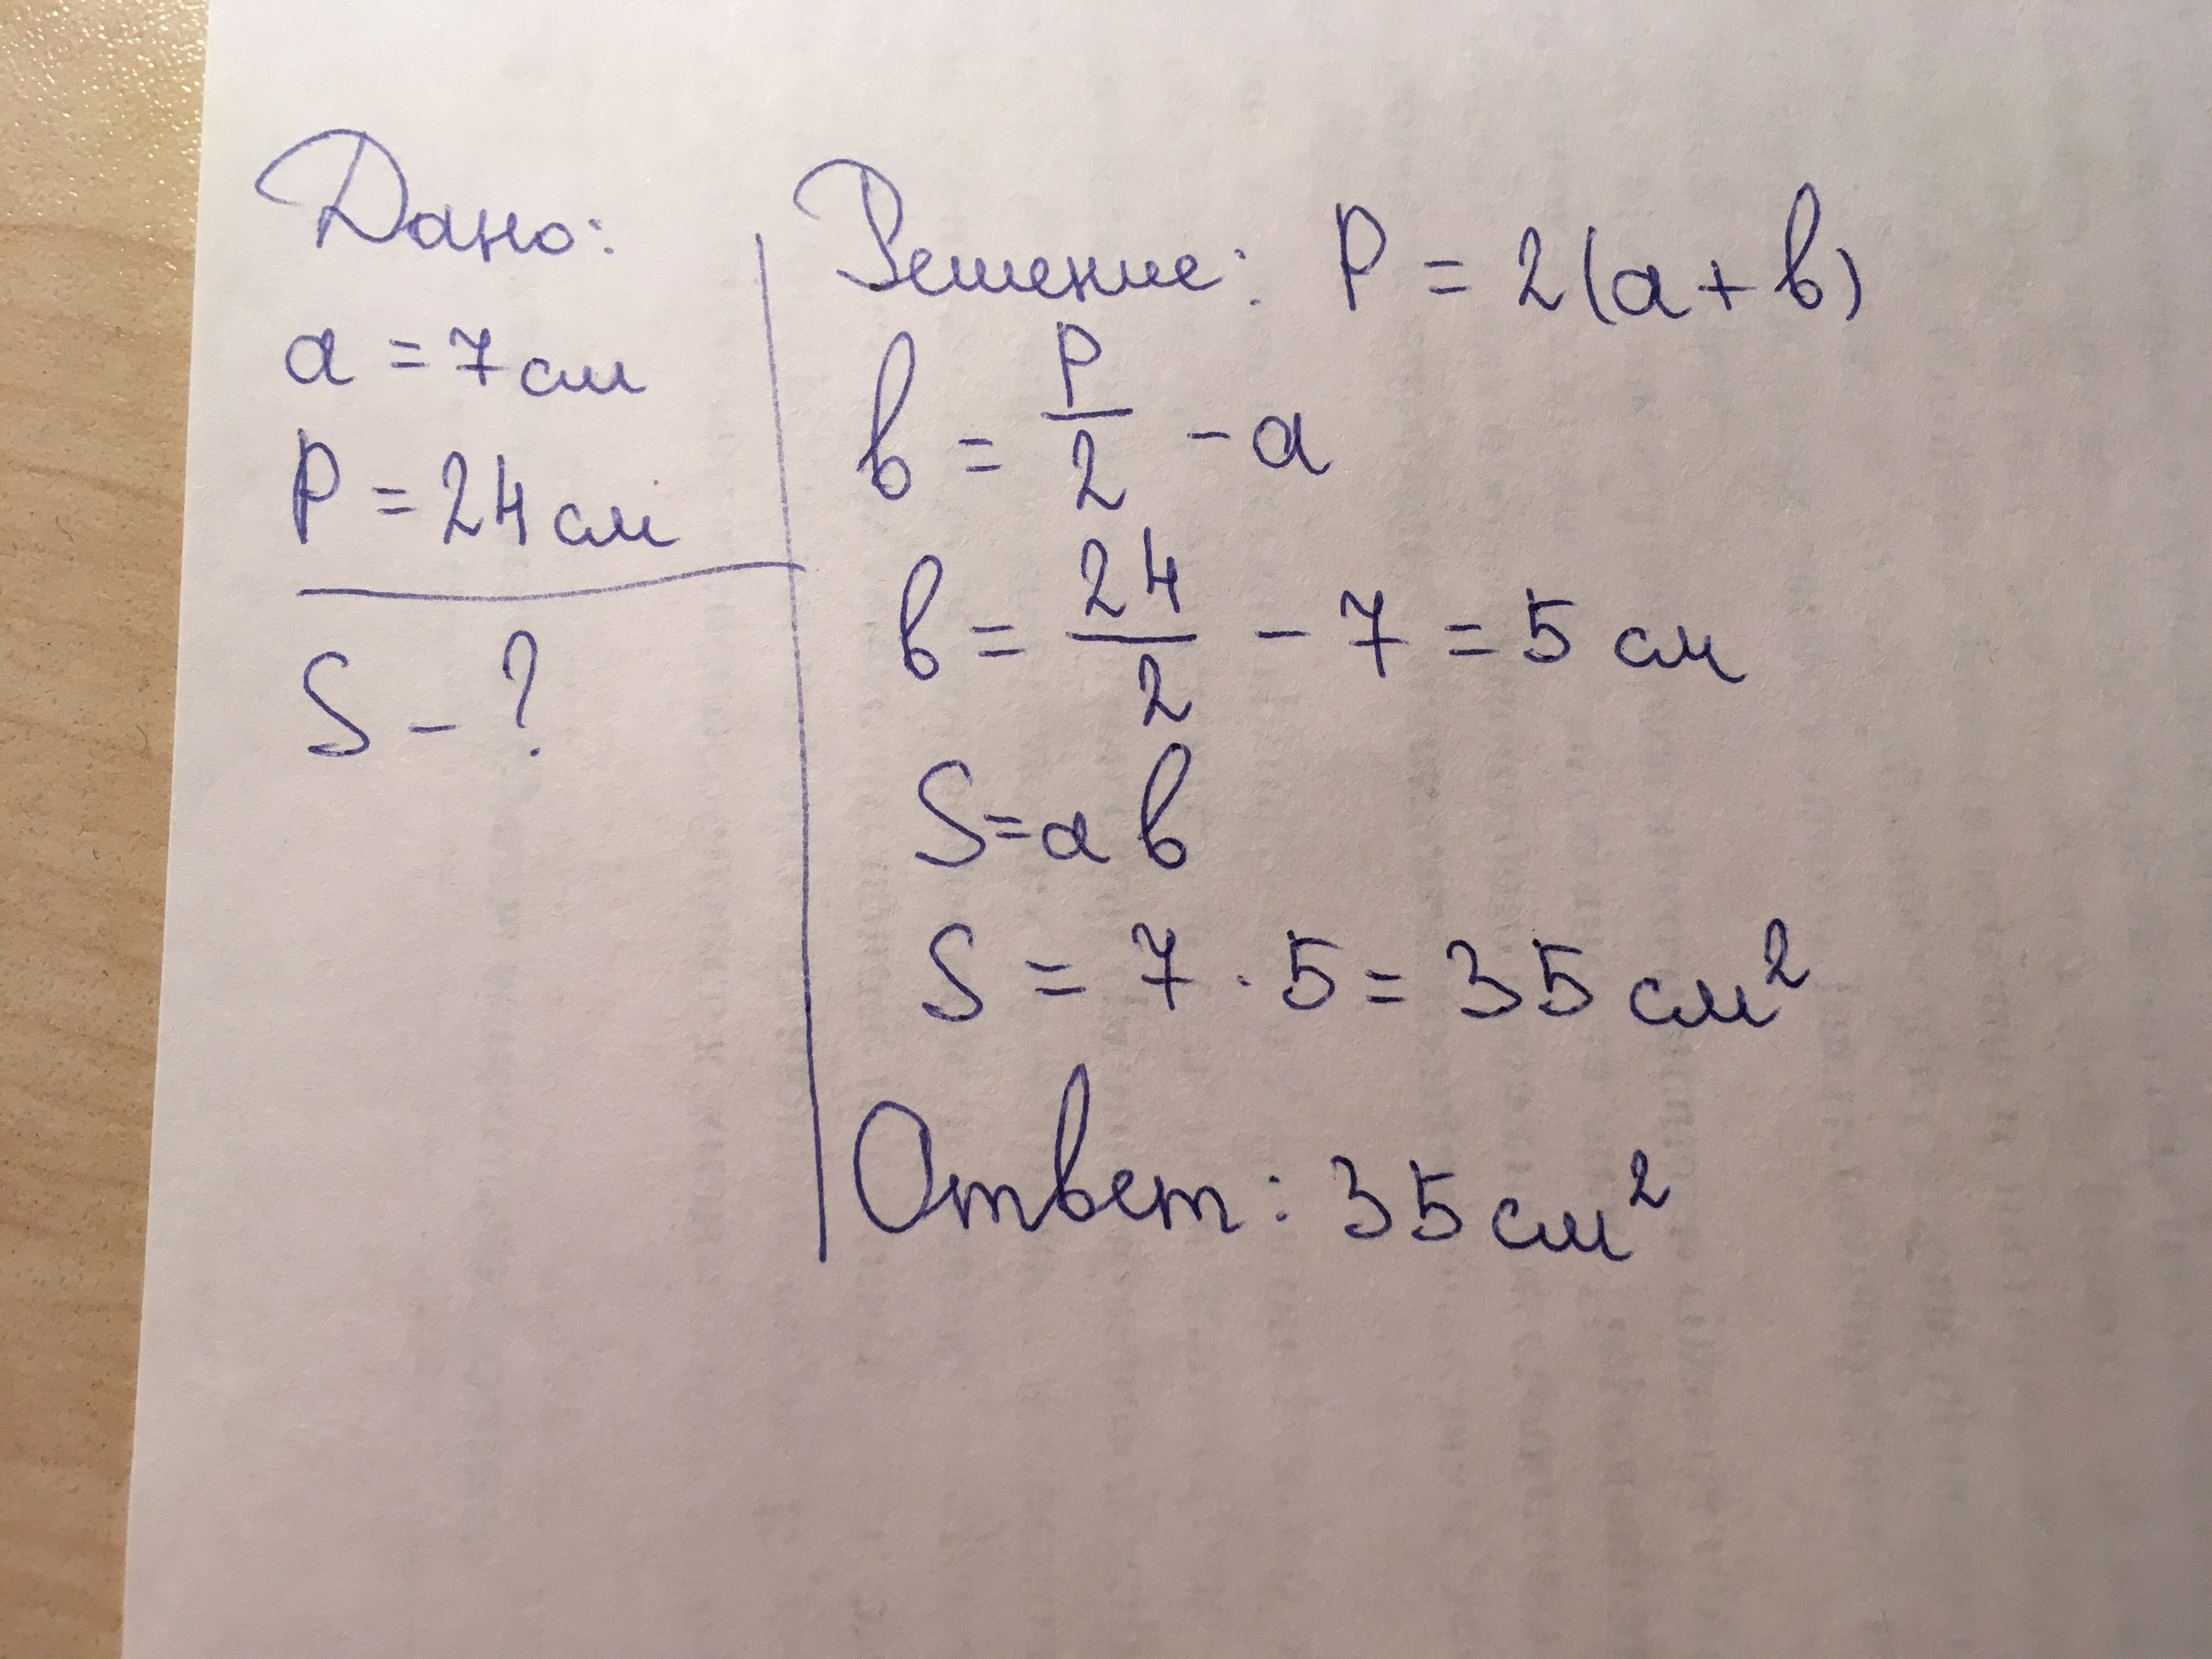 Дано:
a = 7 см
P = 24 см
S - ?
Решение: P = 2(a + b)
b = P/2 - a
b = 24/2 - 7 = 5 см
S = a b
S = 7 · 5 = 35 см²
Ответ: 35 см²